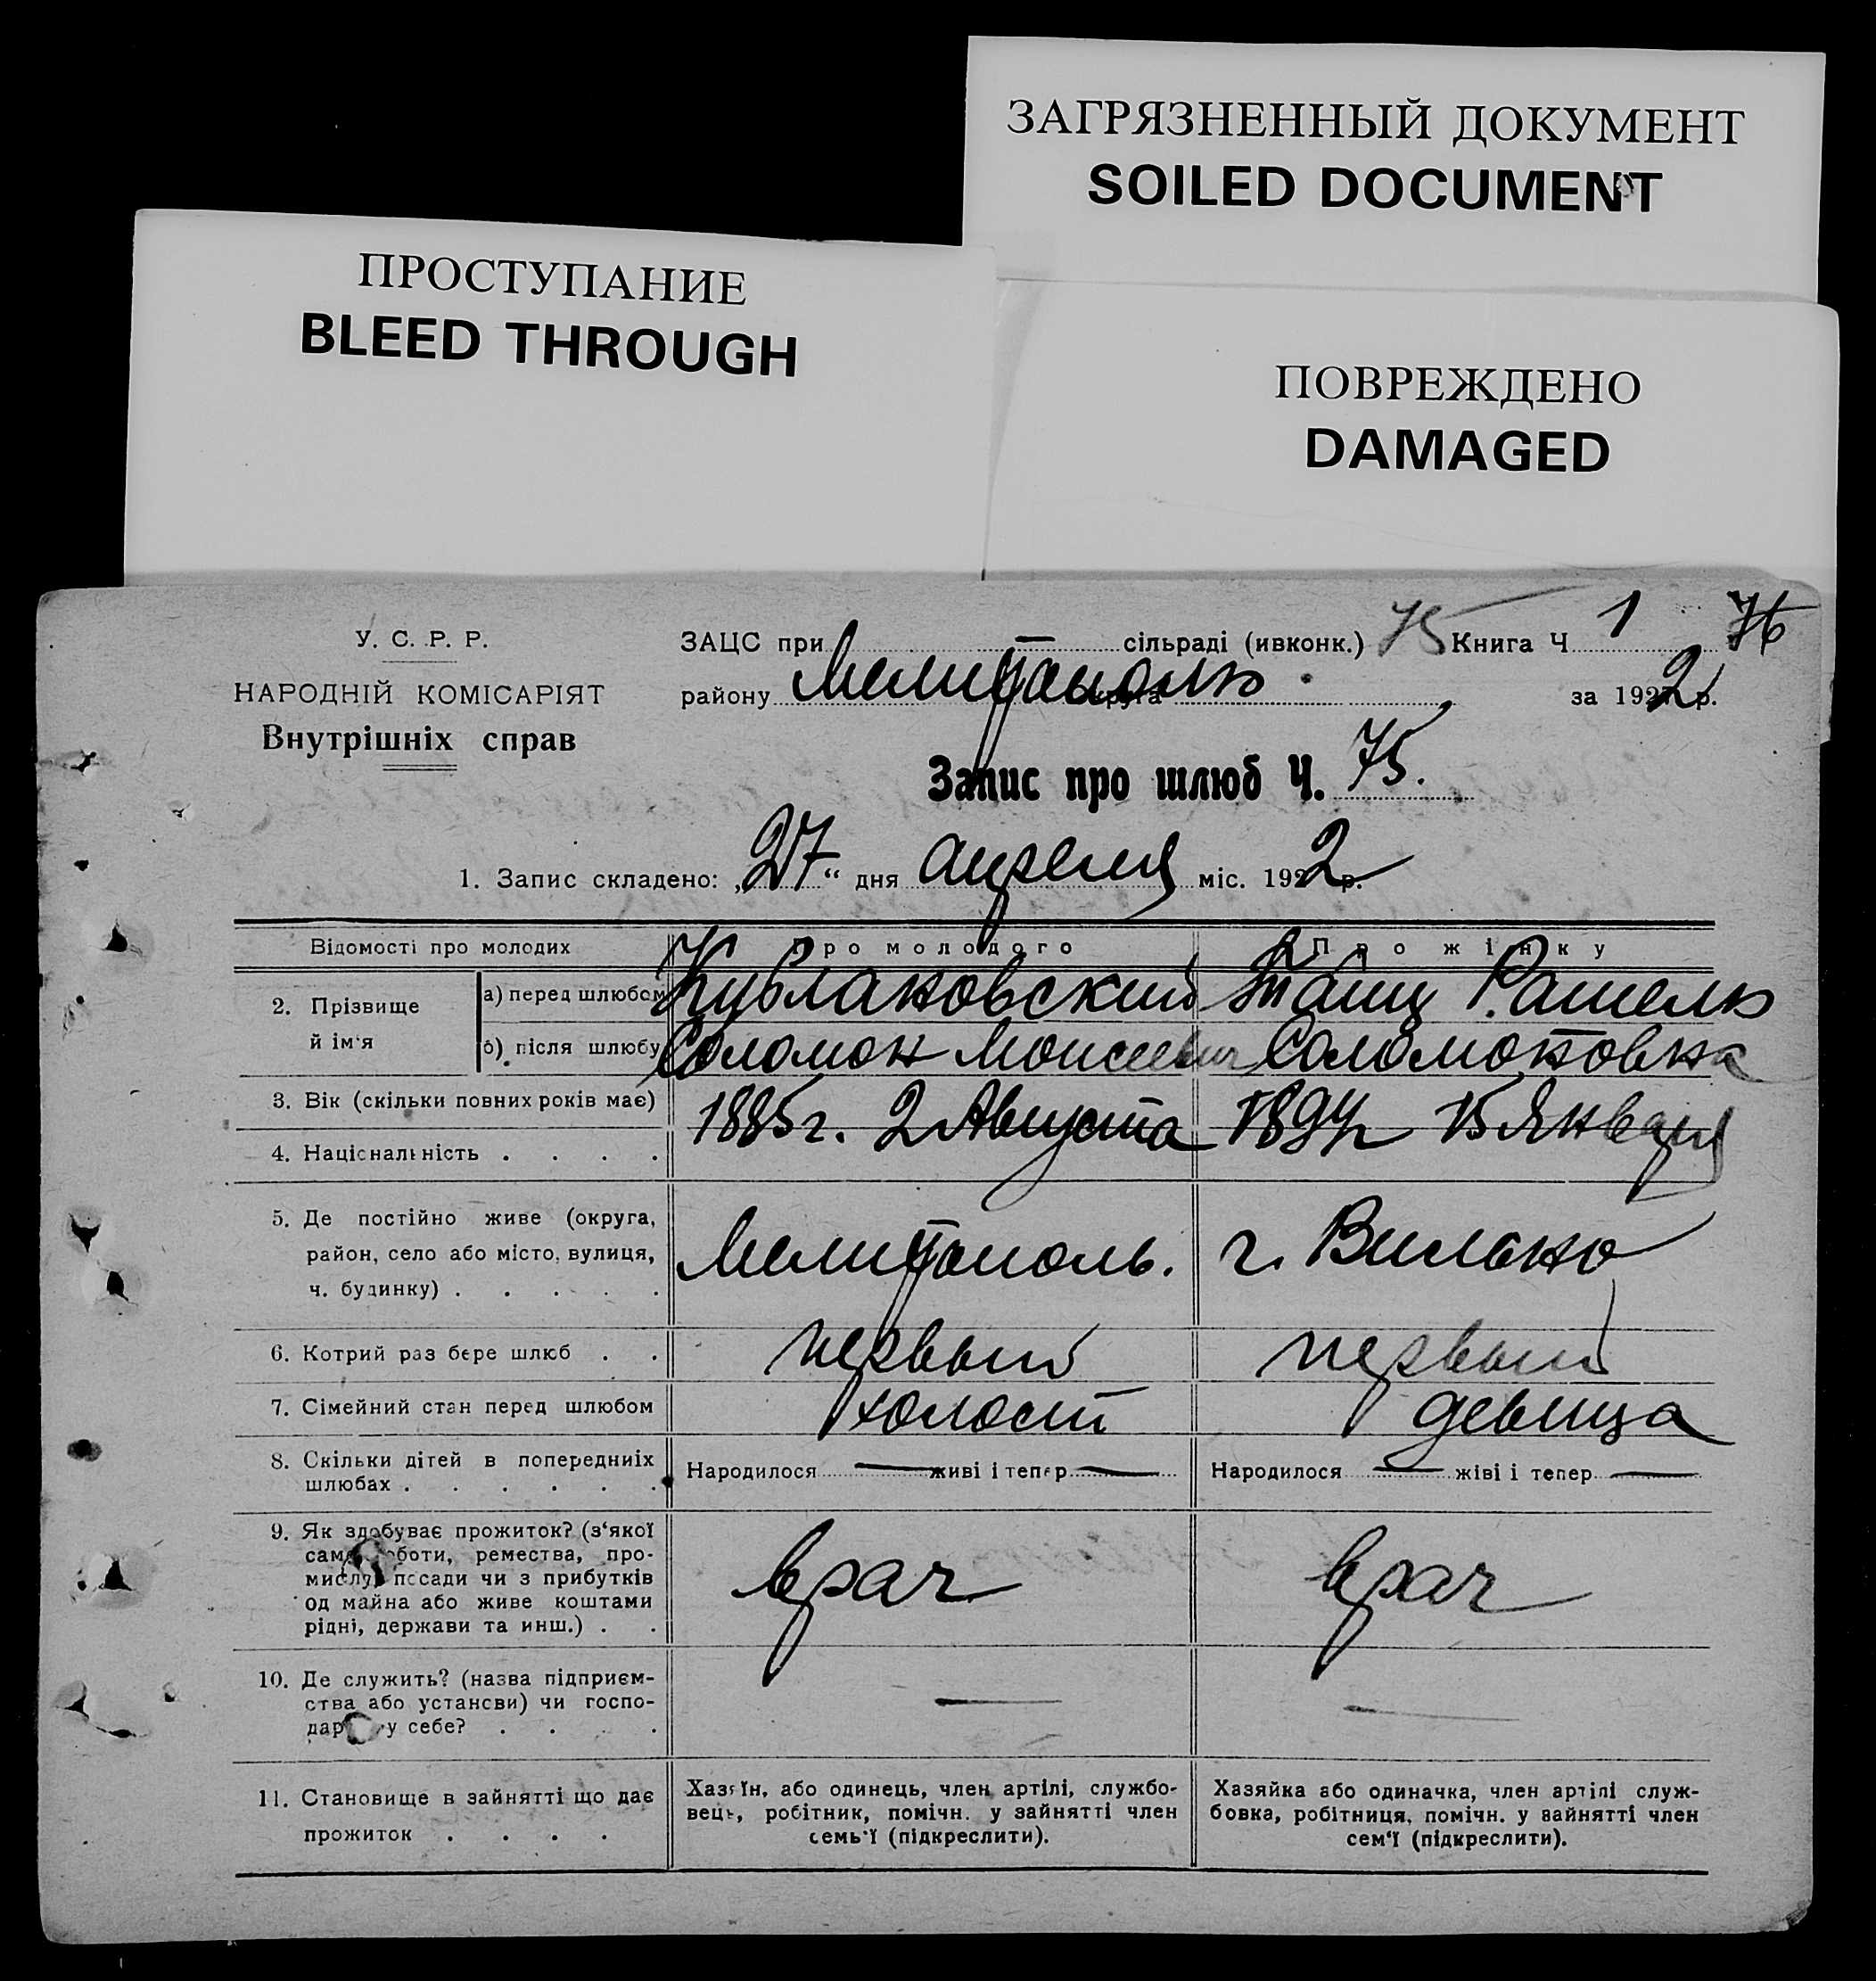 ЗАГРЯЗНЕННЫЙ ДОКУМЕНТ
SOILED DOCUMENT
ПРОСТУПАНИЕ
BLEED THROUGH
ПОВРЕЖДЕНО
DAMAGED
У. С. Р. Р.
НАРОДНІЙ КОМІСАРІЯТ
Внутрішніх справ
ЗАЦС при — сільраді (ивконк.) 75 Книга Ч 1 76
району Мелитополь округа за 1922 р.
Запис про шлюб Ч. 75.
1. Запис складено: „27“ дня апреля міс. 1922 р.
Відомості про молодих Про молодого Про жінку
2. Прізвище й ім'я
а) перед шлюбом
б) після шлюбу
Кублановский Соломон Моисеевич
Рашель Соломоновна
3. Вік (скільки повних років має)
4. Національність . . . .
1885 г. 2 Августа
15 Января
5. Де постійно живе (округа,
район, село або місто, вулиця,
ч. будинку) . . . . .
Мелитополь. г. Вильно
6. Котрий раз бере шлюб . . первый первый
7. Сімейний стан перед шлюбом холост девица
8. Скільки дітей в попередниіх
шлюбах . . . . . .
Народилося — живі і тепер — Народилося — жіві і тепер —
9. Як здобуває прожиток? (з'якої
само роботи, ремества, про-
мислу, посади чи з прибутків
од майна або живе коштами
рідні, держави та инш.) . .
врач врач
10. Де служить? (назва підприєм-
ства або установи) чи госпо-
дарює у себе? . . . .
— —
11. Становище в зайнятті що дає
прожиток . . . .
Хазяїн, або одинець, член артілі, службо-
вець, робітник, помічн. у зайнятті член
семь'ї (підкреслити).
Хазяйка або одиначка, член артілі служ-
бовка, робітниця, помічн. у зайнятті член
сем'ї (підкреслити).